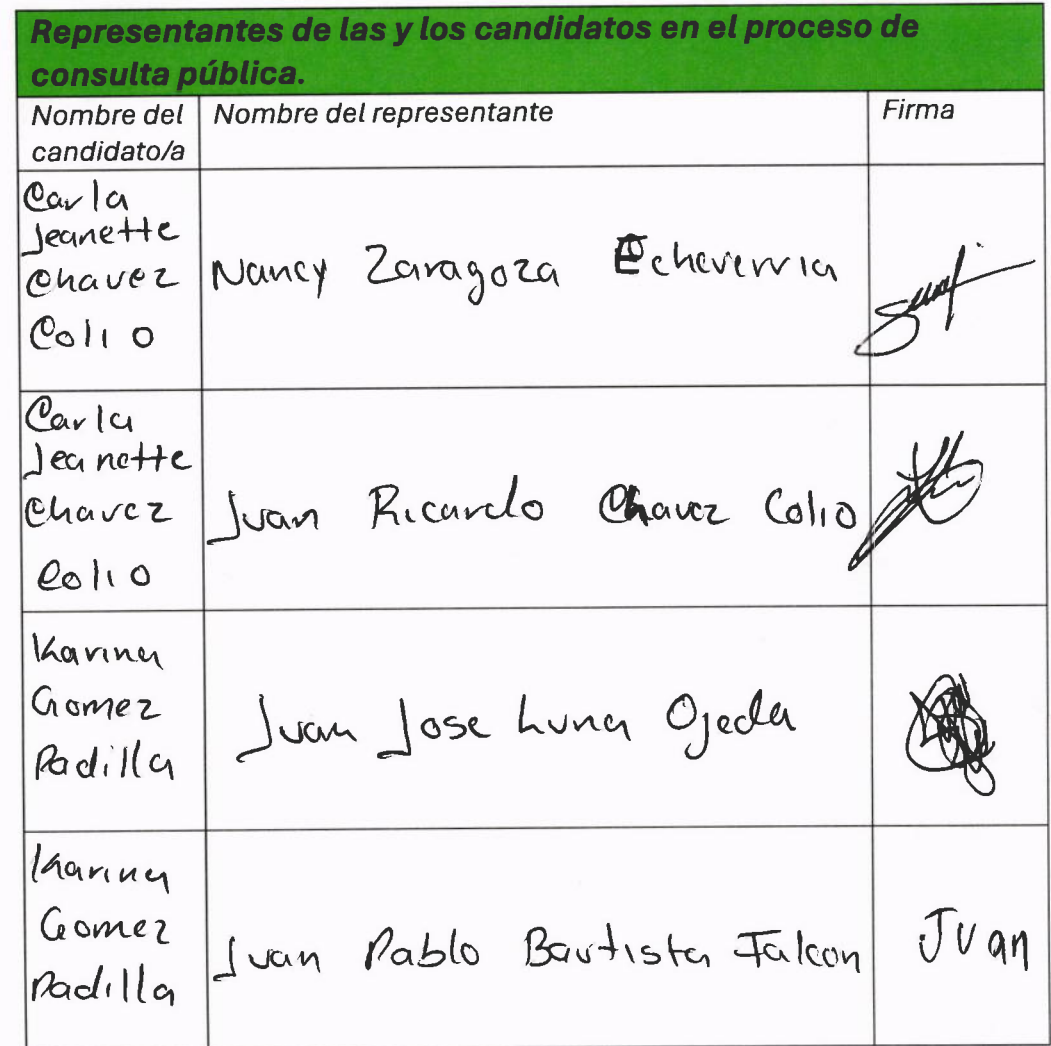 Representantes de las y los candidatos en el proceso de
consulta pública.
Nombre del
candidato/a
Nombre del representante
Firma
Carla
Jeanette
Chavez
Colio
Nancy Zaragoza Echeverria
Carla
Jeanette
Chavez
Colio
Juan Ricardo Chavez Colio
Karina
Gomez
Padilla
Juan Jose Luna Ojeda
Karina
Gomez
Padilla
Juan Pablo Bautista Falcon
Juan